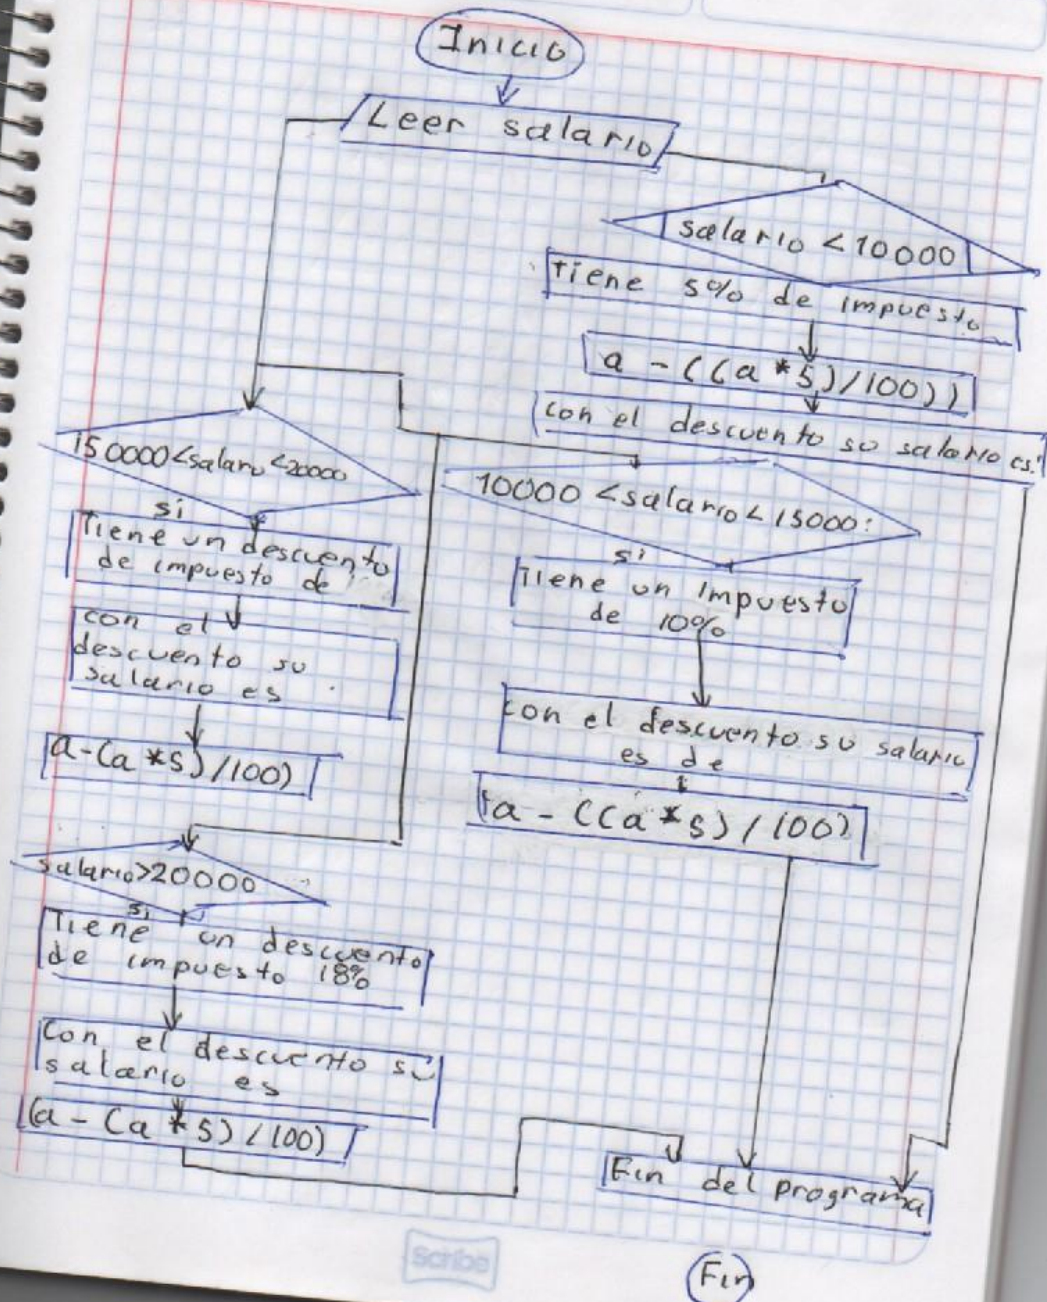 Inicio
Leer salario
salario < 10000
Tiene 5% de impuesto
a - ((a * 5) / 100))
con el descuento su salario es:
150000 < salario < 20000
si
Tiene un descuento
de impuesto de
con el
descuento su
salario es
a - (a * 5) / 100)
10000 < salario < 15000:
si
Tiene un impuesto
de 10%
con el descuento su salario
es de
a - ((a * 5) / 100)
salario > 20000
si
Tiene un descuento
de impuesto 18%
Con el descuento su
salario es
(a - (a * 5) / 100)
Fin del programa
Fin
scribe